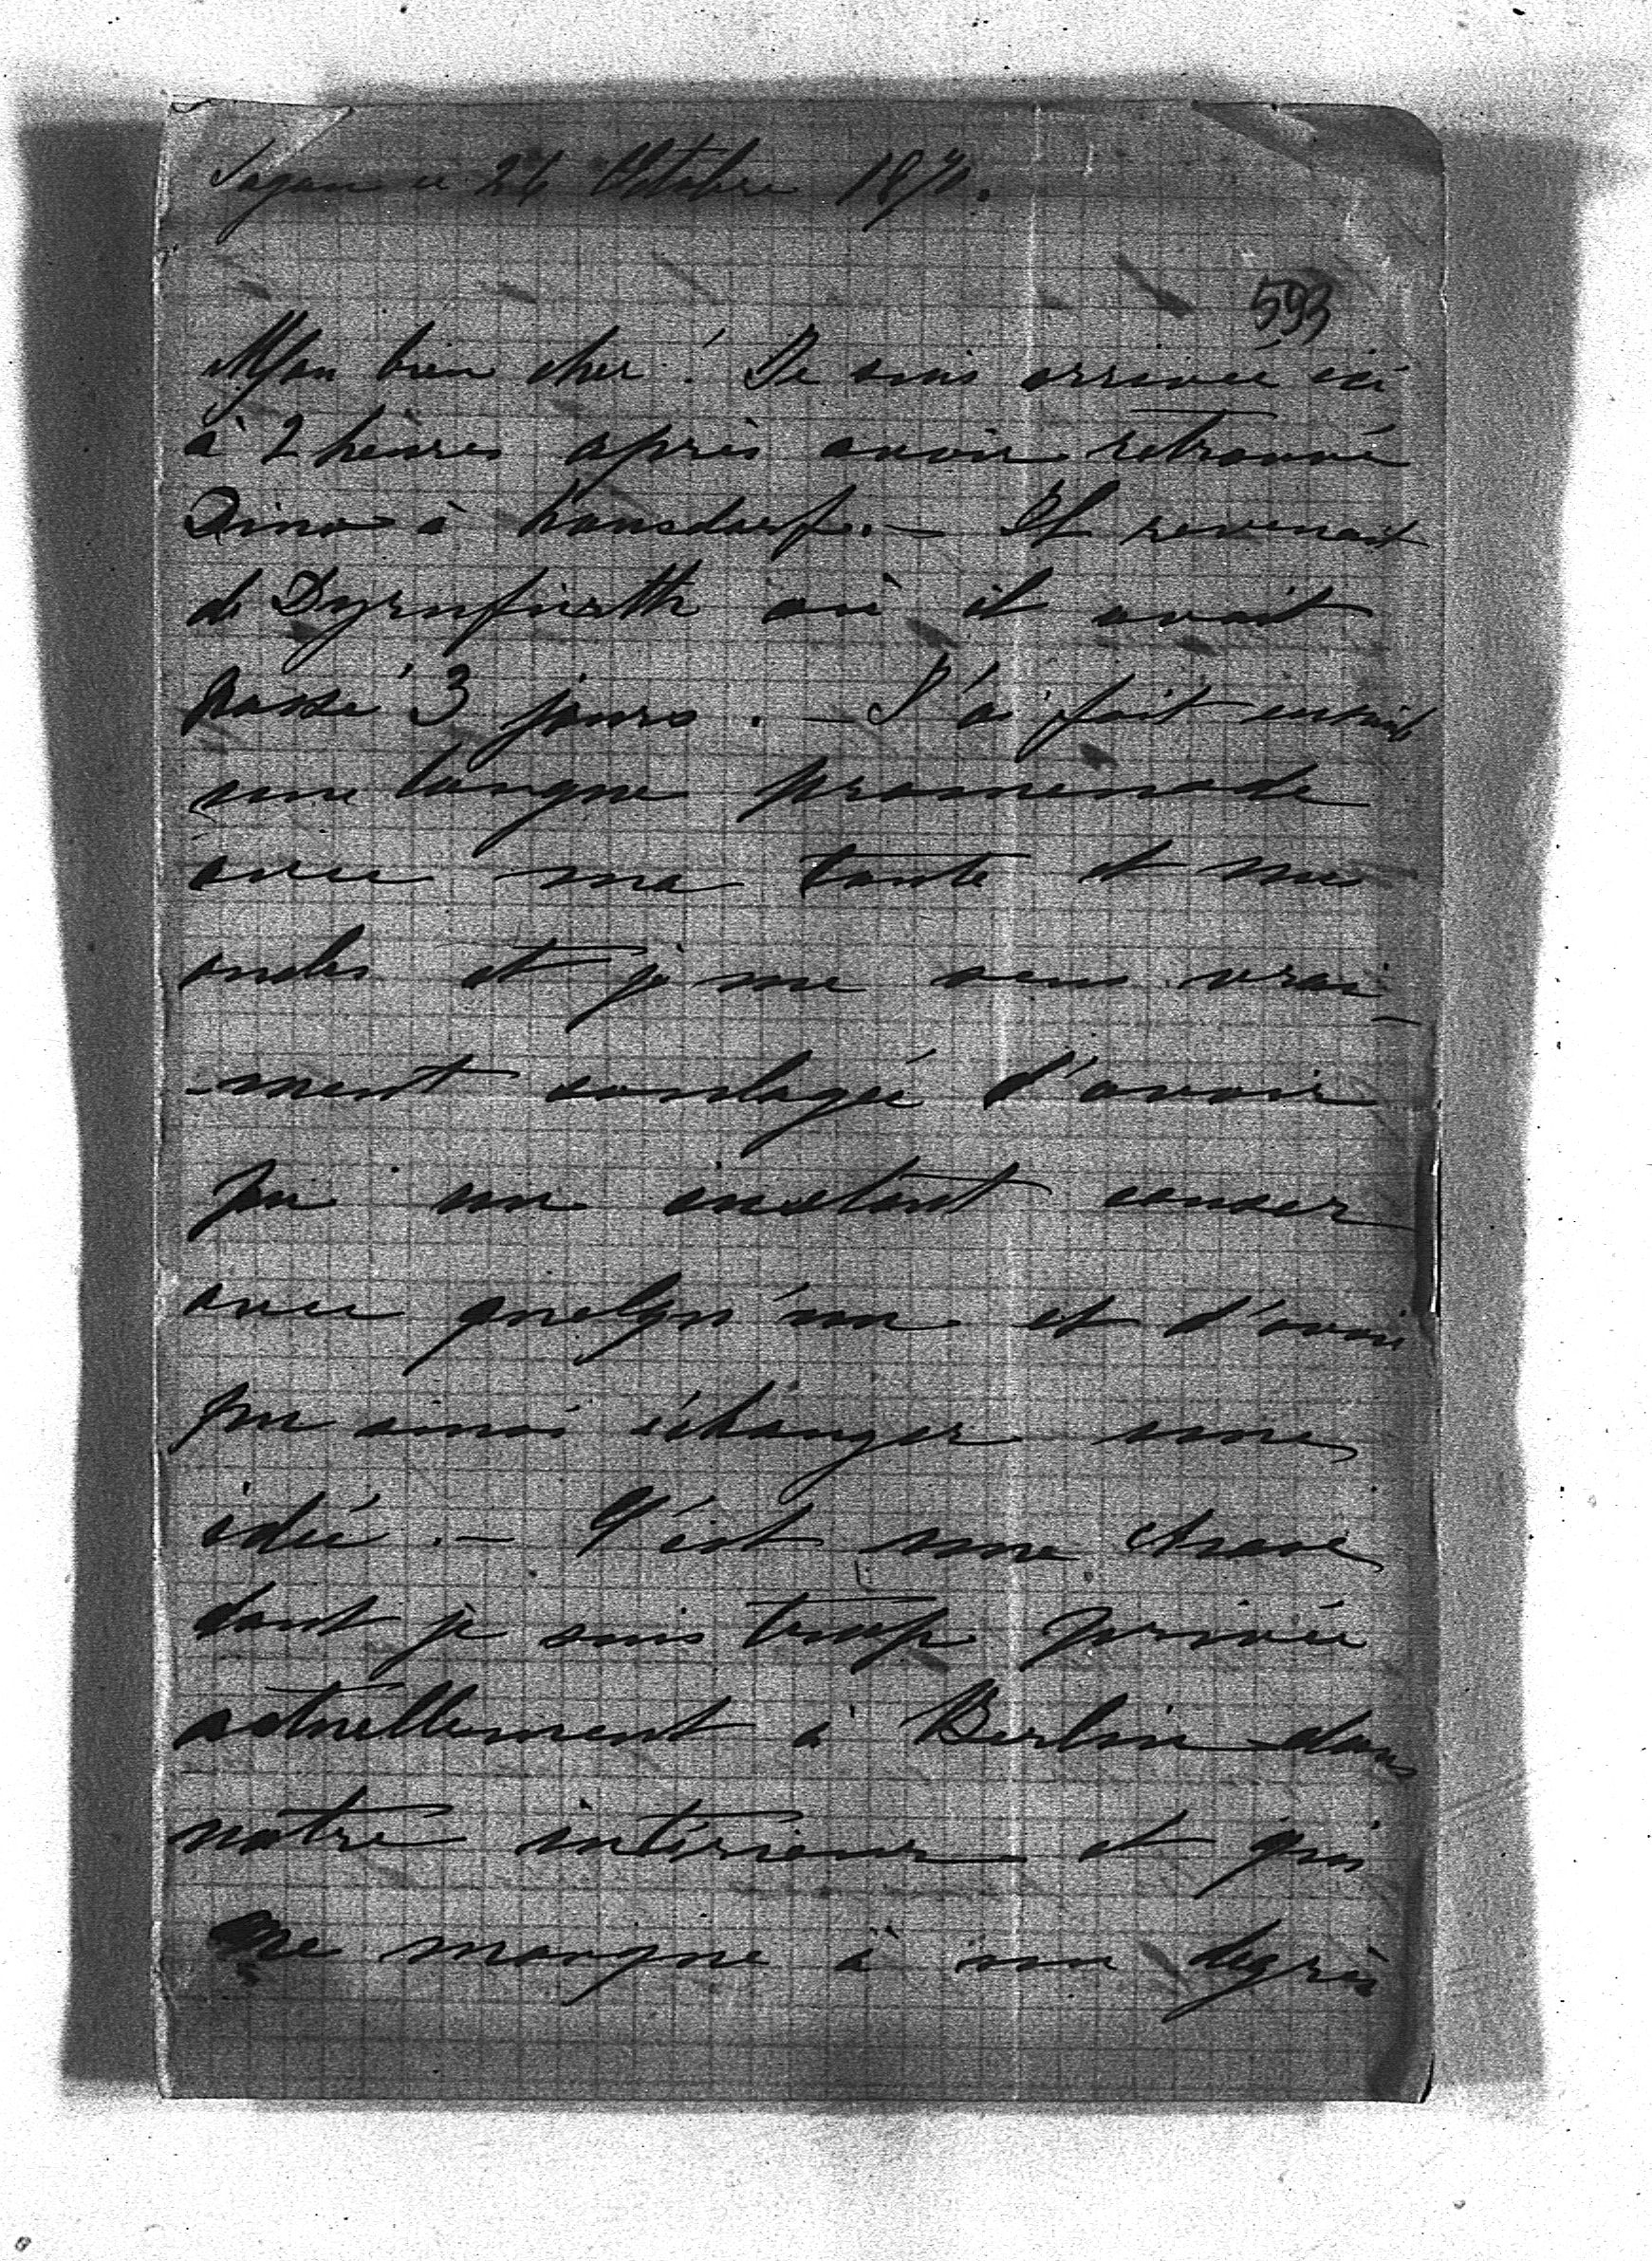 Sagan ce 26 Octobre 1870.
593
Mon bien cher! Je suis arrivée ici
à 2 heures après avoir retrouvé
Dino à Hansdorf. – Il revenait
de Dyrnfurth où il avait
passé 3 jours. – J'ai fait ensuite
une longue promenade
avec ma tante et mes
oncles et je me sens vrai-
-ment soulagée d'avoir
pu un instant causer
avec quelqu'un et d'avoir
pu ainsi échanger une
idée. – C'est une chose
dont je suis trop privée
actuellement à Berlin dans
notre intérieur et qui
me manque à un degré